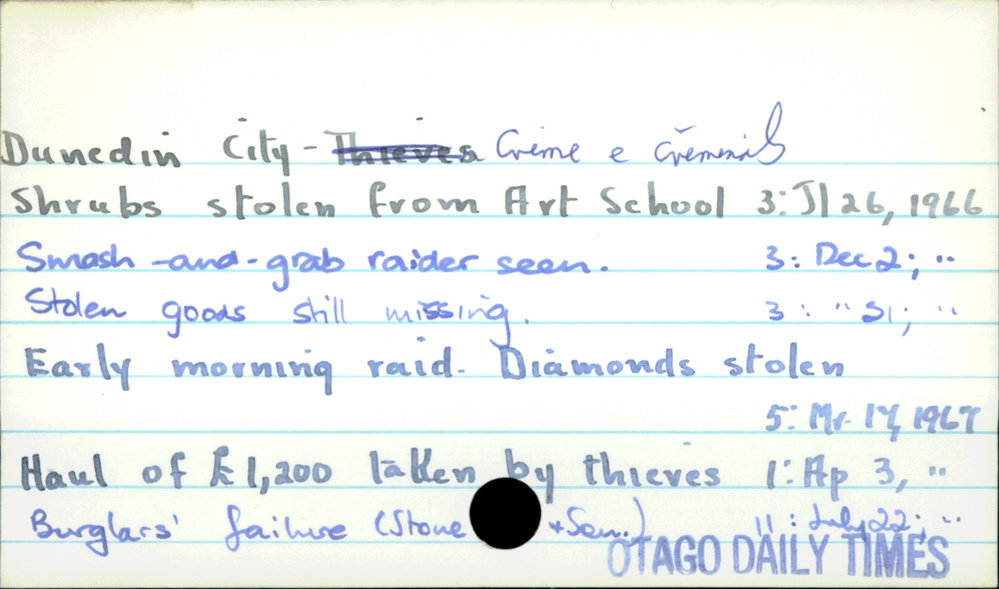 Dunedin City - Thieves Crime e Criminals
Shrubs stolen from Art School 3: Jl 26, 1966
Smash-and-grab raider seen. 3: Dec 2; "
Stolen goods still missing. 3: " 31; "
Early morning raid. Diamonds stolen
5: Mr. 17, 1967
Haul of £1,200 taken by thieves 1: Ap 3, "
Burglars' failure (Stone + Son.) 11: July 22; "
OTAGO DAILY TIMES